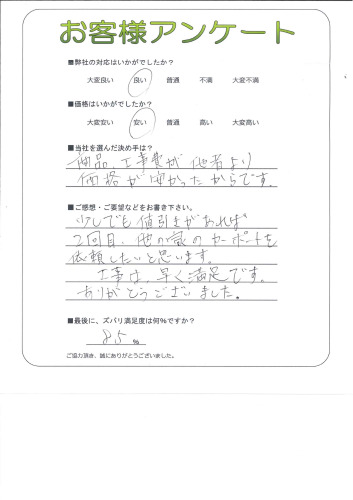 お客様アンケート
■弊社の対応はいかがでしたか?
大変良い 良い 普通 不満 大変不満
■価格はいかがでしたか?
大変安い 安い 普通 高い 大変高い
■当社を選んだ決め手は?
商品、工事費が他者より
価格が安かったからです。
■ご感想・ご要望などをお書き下さい。
少しでも値引きがあれば
2回目、他の家のカーポートを
依頼したいと思います。
工事は、早く満足です。
ありがとうございました。
■最後に、ズバリ満足度は何%ですか?
85 %
ご協力頂き、誠にありがとうございました。